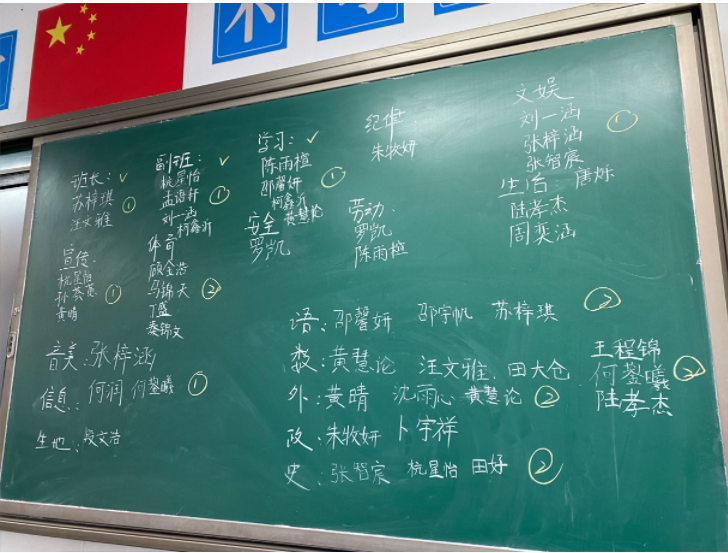 不
班长: ✓
苏梓琪
汪文雅 ①
副班: ✓
杭星怡
孟语轩 ①
刘一涵
柯鑫沂
学习: ✓
陈雨楦
邵馨妍 ①
柯鑫沂
黄慧论
纪律
朱牧妍
文娱
刘一涵 ①
张梓涵
张智宸
宣传:
杭星怡
孙荟蕙 ①
黄晴
体育
顾全浩
马锦天 ②
丁盛
秦锦文
安全
罗凯
劳动.
罗凯
陈雨楦
生活: 唐烁
陆孝杰
周奕涵
音美: 张梓涵
信息: 何润 何蓥曦 ①
生地: 段文浩
语: 邵馨妍 邵宇帆 苏梓琪 ②
数: 黄慧论 汪文雅. 田大仓 王程锦
何蓥曦 ②
陆孝杰
外: 黄晴 沈雨心 黄慧论 ②
政: 朱牧妍 卜宇祥
史: 张智宸 杭星怡 田好 ②